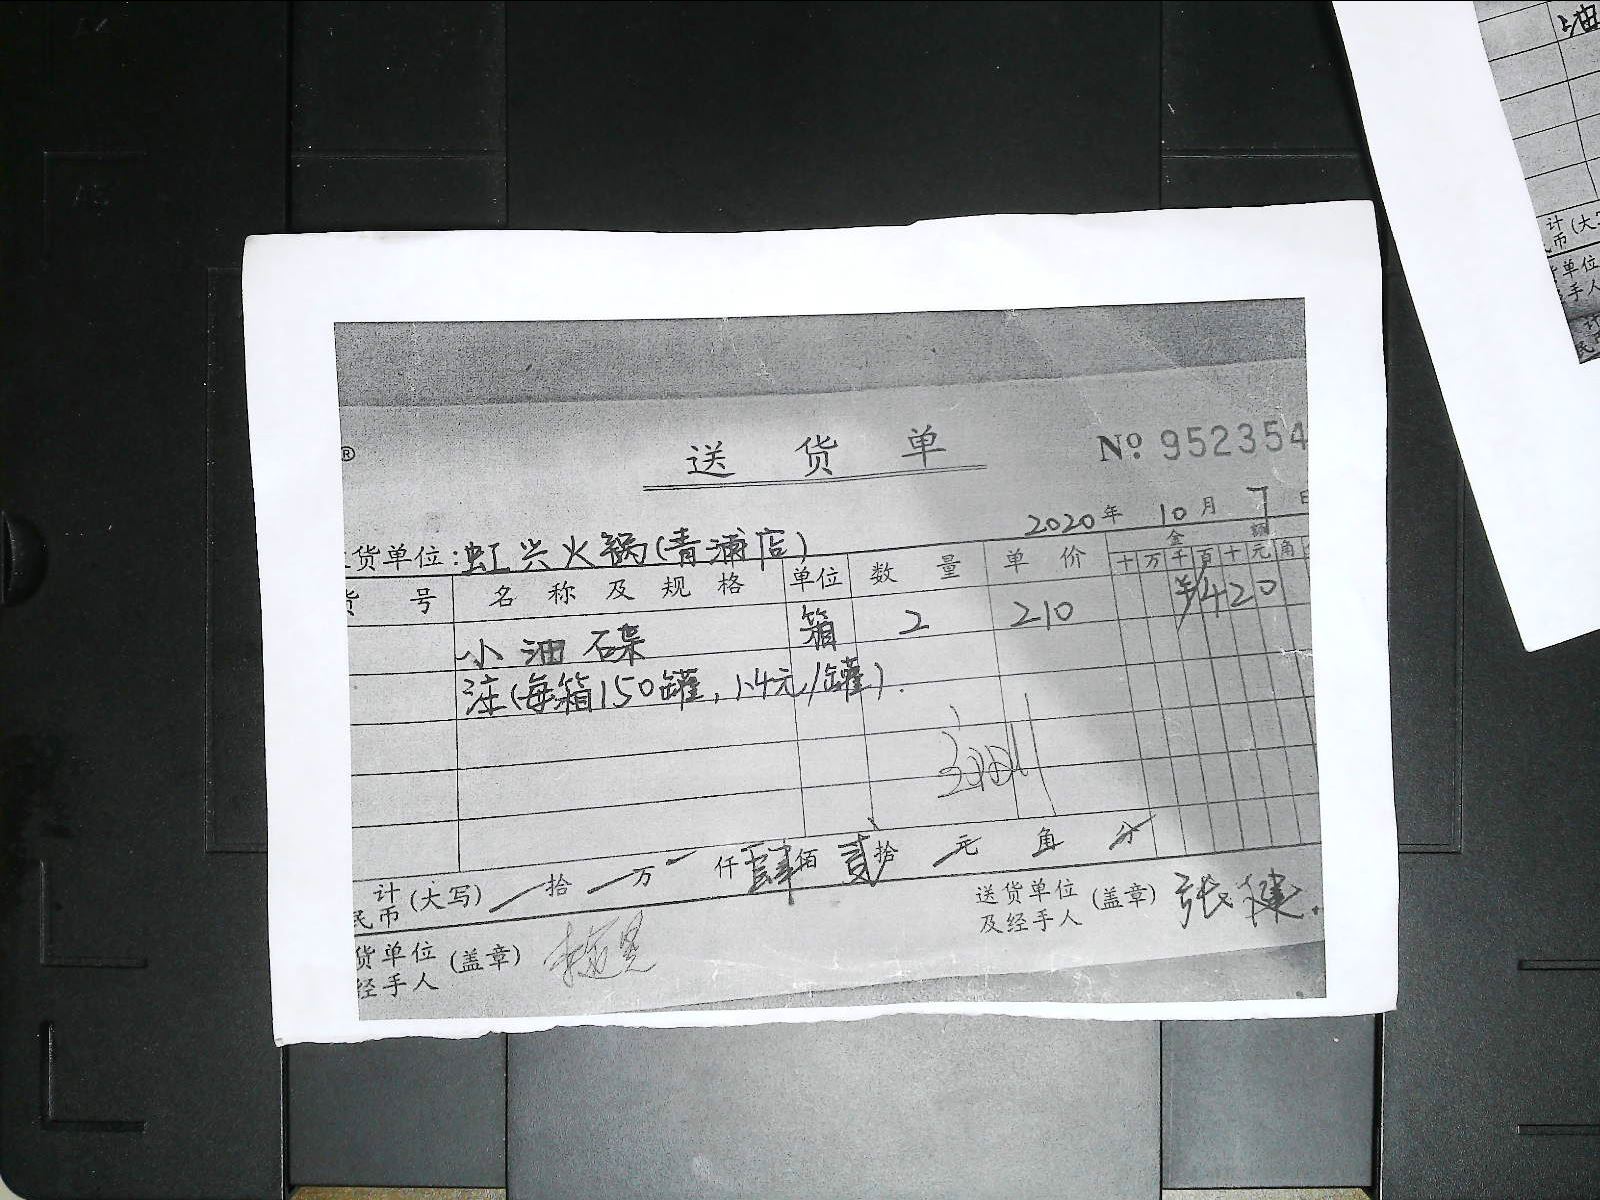 油
计(大
币
单位
手人
计
®
送 货 单
№ 952354
2020年 10月 7日
货单位:虹兴火锅(青浦店)
号 名称及规格 单位 数量 单价 金额
十万千百十元角
小油碟 箱 2 210 ¥420
注(每箱150罐,1.4元/罐).
计(大写) 拾 万 仟肆佰贰拾 元 角 分
民币
送货单位(盖章) 张健.
及经手人
货单位(盖章)
经手人